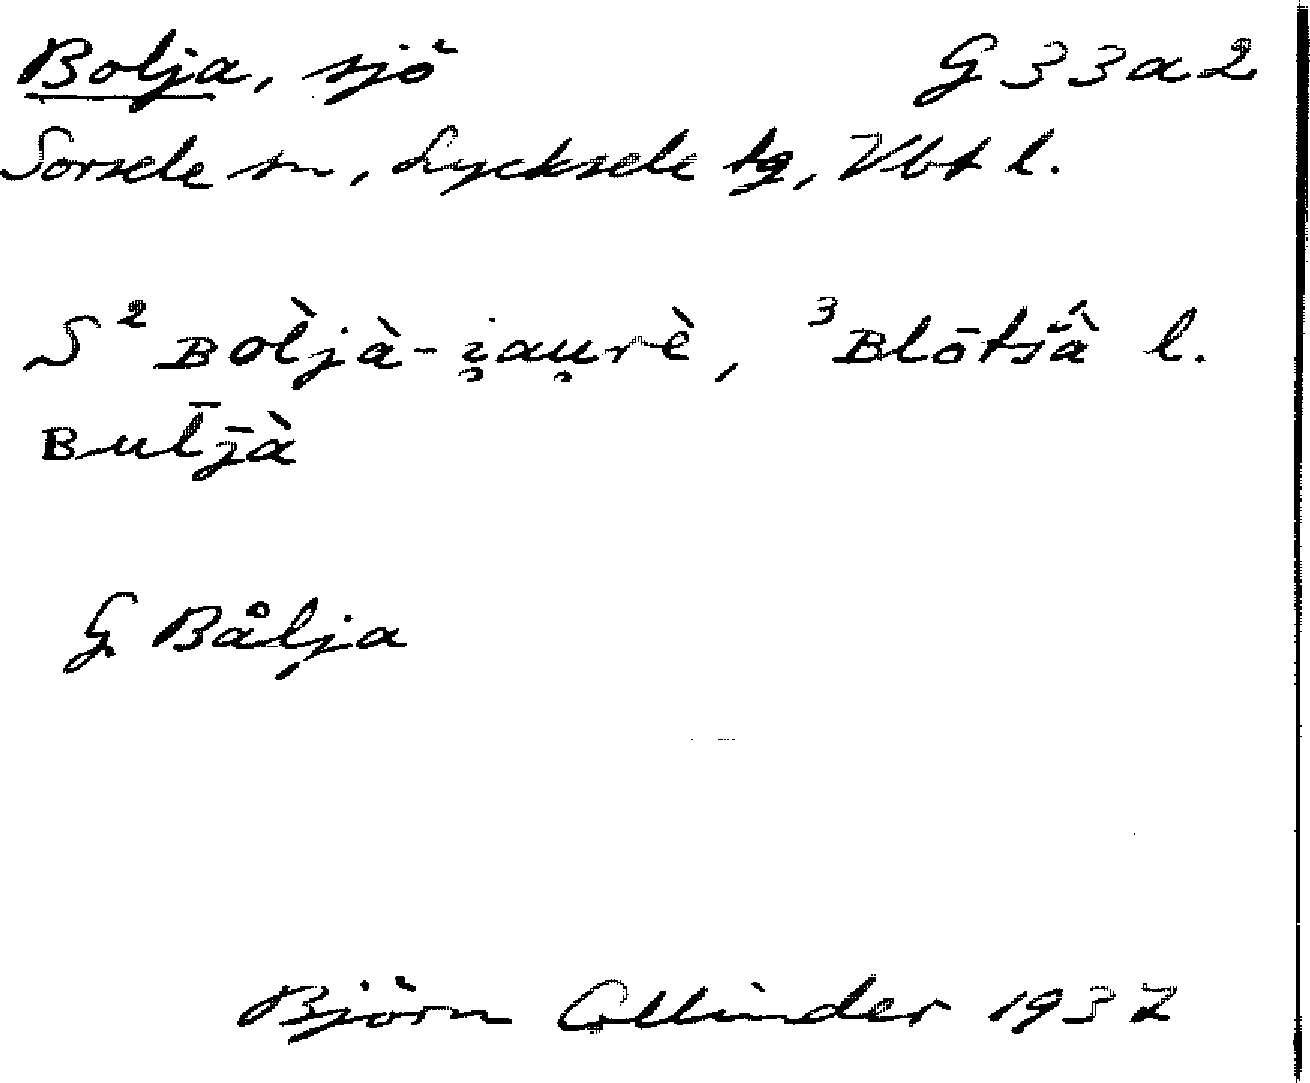 Bolja, sjö G 33a2
Sorsele sn, Lycksele tg, Vbt l.
S ² Bol̀jà-i̯au̯rè, ³ Blōtsā̀ l.
Bul̄j̄à
G. Bålja
Björn Collinder 1937